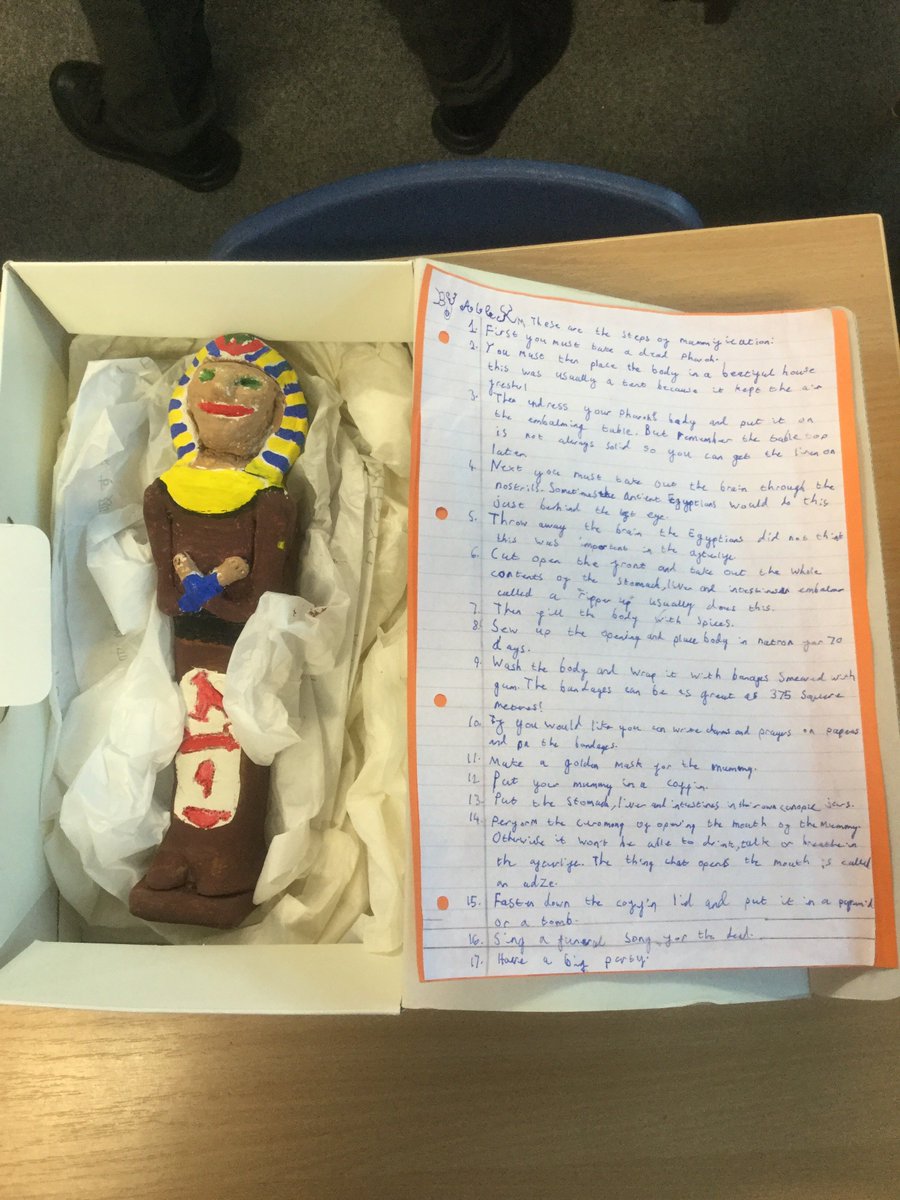 By
M These are the steps of mummyication:
1. First you must take a dead pharoh.
2. You must then place the body in a beatiful house
this was usually a tent because it kept the air
fresh!
3. Then undress your pharohs body and put it on
the embalming table. But remember the table top
is not always solid so you can get the linen on
later.
4. Next you must take out the brain through the
nostrils. Sometimes the Ancient Egyptians would do this
just behind the left eye.
5. Throw away the brain the Egyptians did not think
this was important in the afterlife.
6. Cut open the front and take out the whole
contents of the stomach, liver and intestines an embalmer
called a "ripper up" usually does this.
7. Then fill the body with spices.
8. Sew up the opening and place body in natron for 70
days.
9. Wash the body and wrap it with banages smeared with
gum. The bandages can be as great as 375 square
metres!
10. If you would like you can write charms and prayers on papers
and on the bandages.
11. Make a golden mask for the mummy.
12. Put your mummy in a coffin.
13. Put the stomach, liver and intestines in their own canopic jars.
14. Perform the ceromony of opening the mouth of the mummy.
Otherwise it won't be able to drink, talk or breathe in
the afterlife. The thing that opens the mouth is called
an adze.
15. Fasten down the coffin lid and put it in a pyramid
or a tomb.
16. Sing a funeral song for the
17. Have a big party.